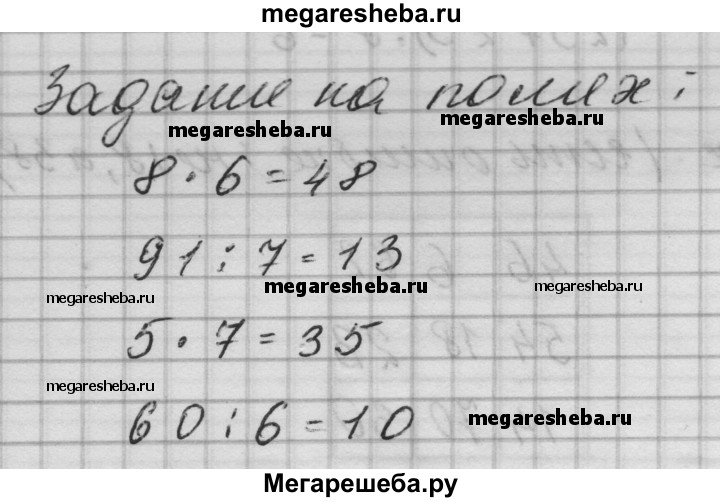 megaresheba.ru
Задание на полях:
megaresheba.ru megaresheba.ru
8 · 6 = 48
91 : 7 = 13
megaresheba.ru megaresheba.ru megaresheba.ru
5 · 7 = 35
megaresheba.ru
60 : 6 = 10
megaresheba.ru
Мегарешеба.ру